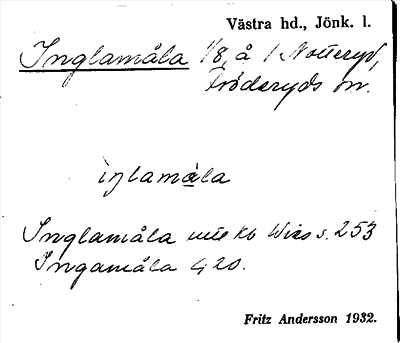 Västra hd., Jönk. l.
Inglamåla 1/8 å 1 Notteryd,
Fröderyds sn.
iŋlamåla
Inglamåla utte Kb Wixs s. 253
Ingamåla 4 20.
Fritz Andersson 1932.